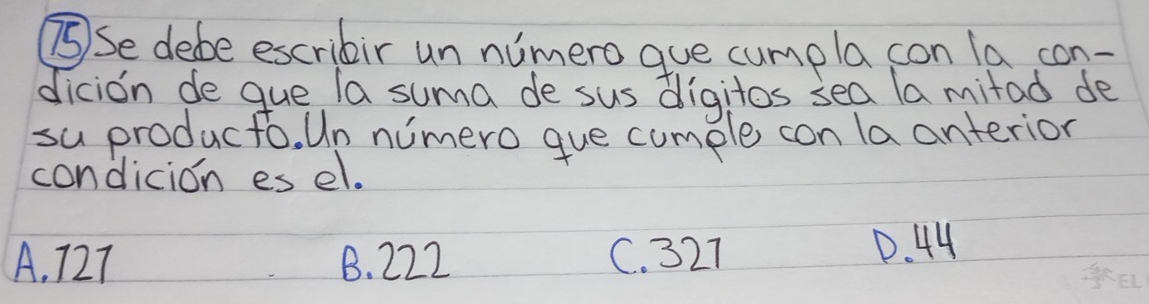 75 Se debe escribir un número que cumpla con la con-
dición de que la suma de sus dígitos sea la mitad de
su producto. Un número que cumple con la anterior
condición es el.
A. 121 B. 222 C. 321 D. 44
EL